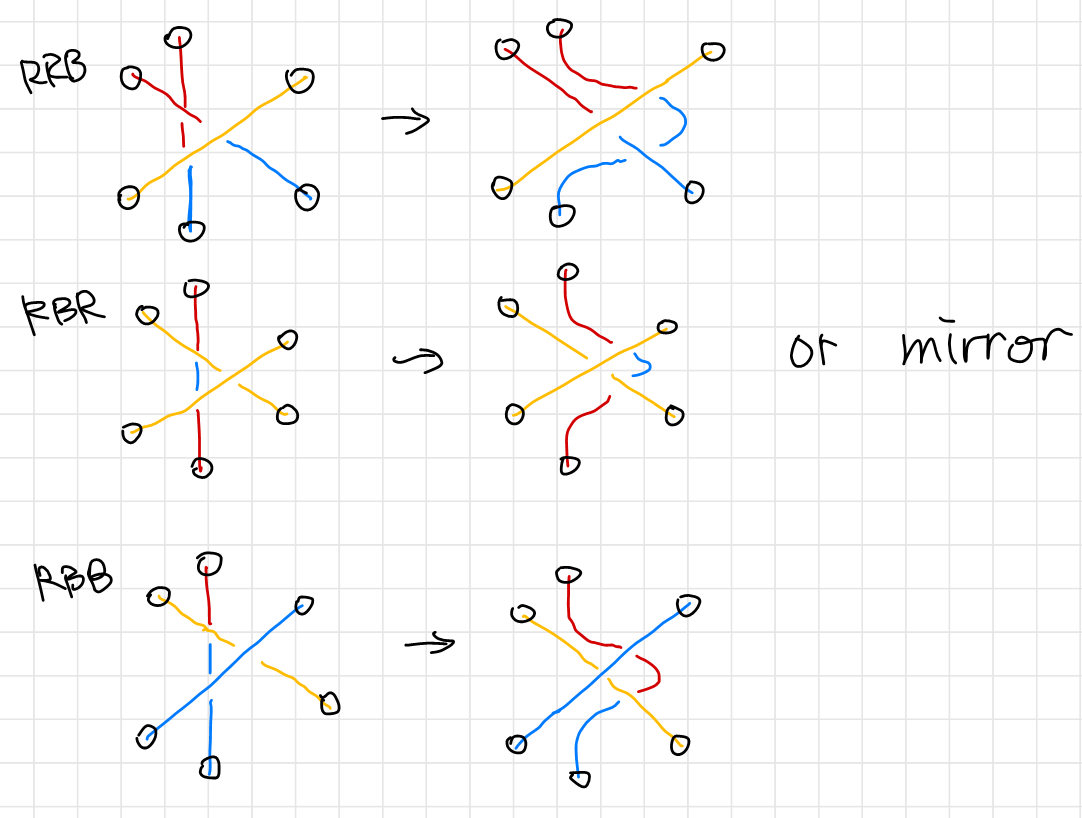 RRB
RBR
or mirror
RBB